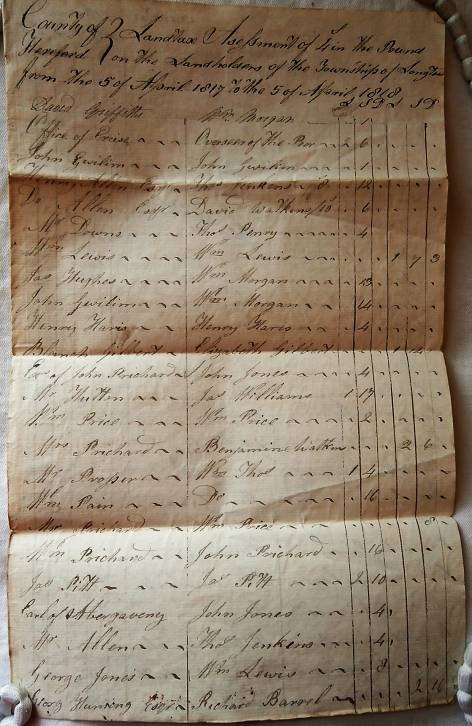 County of } Landtax Assessment of 4/ in the Pound
Hereford } on the Landholders of the Township of Longtown
from the 5 of April 1817 to the 5 of April 1818
£ S D £ S D
David Griffiths Wm Morgan 1
Office of Excise Overseer of the Poor 6
John Gwilim John Gwilim 1
Allen Esqr Thos Jenkins 12
Do Allen Esqr David Watkins 6
Mr Downs Thos Penry 4
Wm Lewis Wm Lewis 1 7 3
Jas Hughes Wm Morgan
John Gwilim Wm Morgan 14
Henry Haris Henry Haris 4
Gilbert Elizabeth Gilbert
of John Prichard John Jones 4
Mr Hutten Jas Williams 1 17
Wm Price Wm Price 2
Mrs Prichard Benjamine Watkins 2 6
Mr Proper Wm Thos 1 4
Wm Pain Do 16
Prichard Wm Price 8
Wm Prichard John Prichard 16
Jas Pitt Jas Pitt 2 10
Earl of Abergaveny John Jones 4
Mr Allen Thos Jenkins 4
George Jones Wm Lewis 8
Georg Hunking Esqr Richard Barrel 2 16